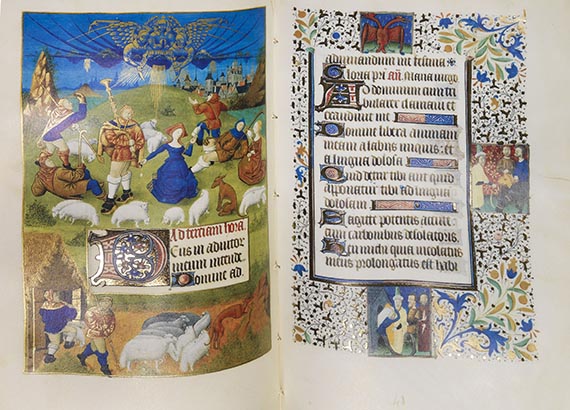 Ad tertiam hora
Deus in adiutor
meum intende.
Domine ad
adiuuandum me festina
Gloria pri añ. Maria uirgo
Ad dominum cum tri
bularer clamaui et
exaudiuit me
Domine libera animam
meam a labiis iniquis et
a lingua dolosa
Quid detur tibi aut quid
apponatur tibi ad linguam
dolosam
Sagitte potentis acute
cum carbonibus desolatoriis.
Heu michi quia incolatus
meus prolongatus est habi